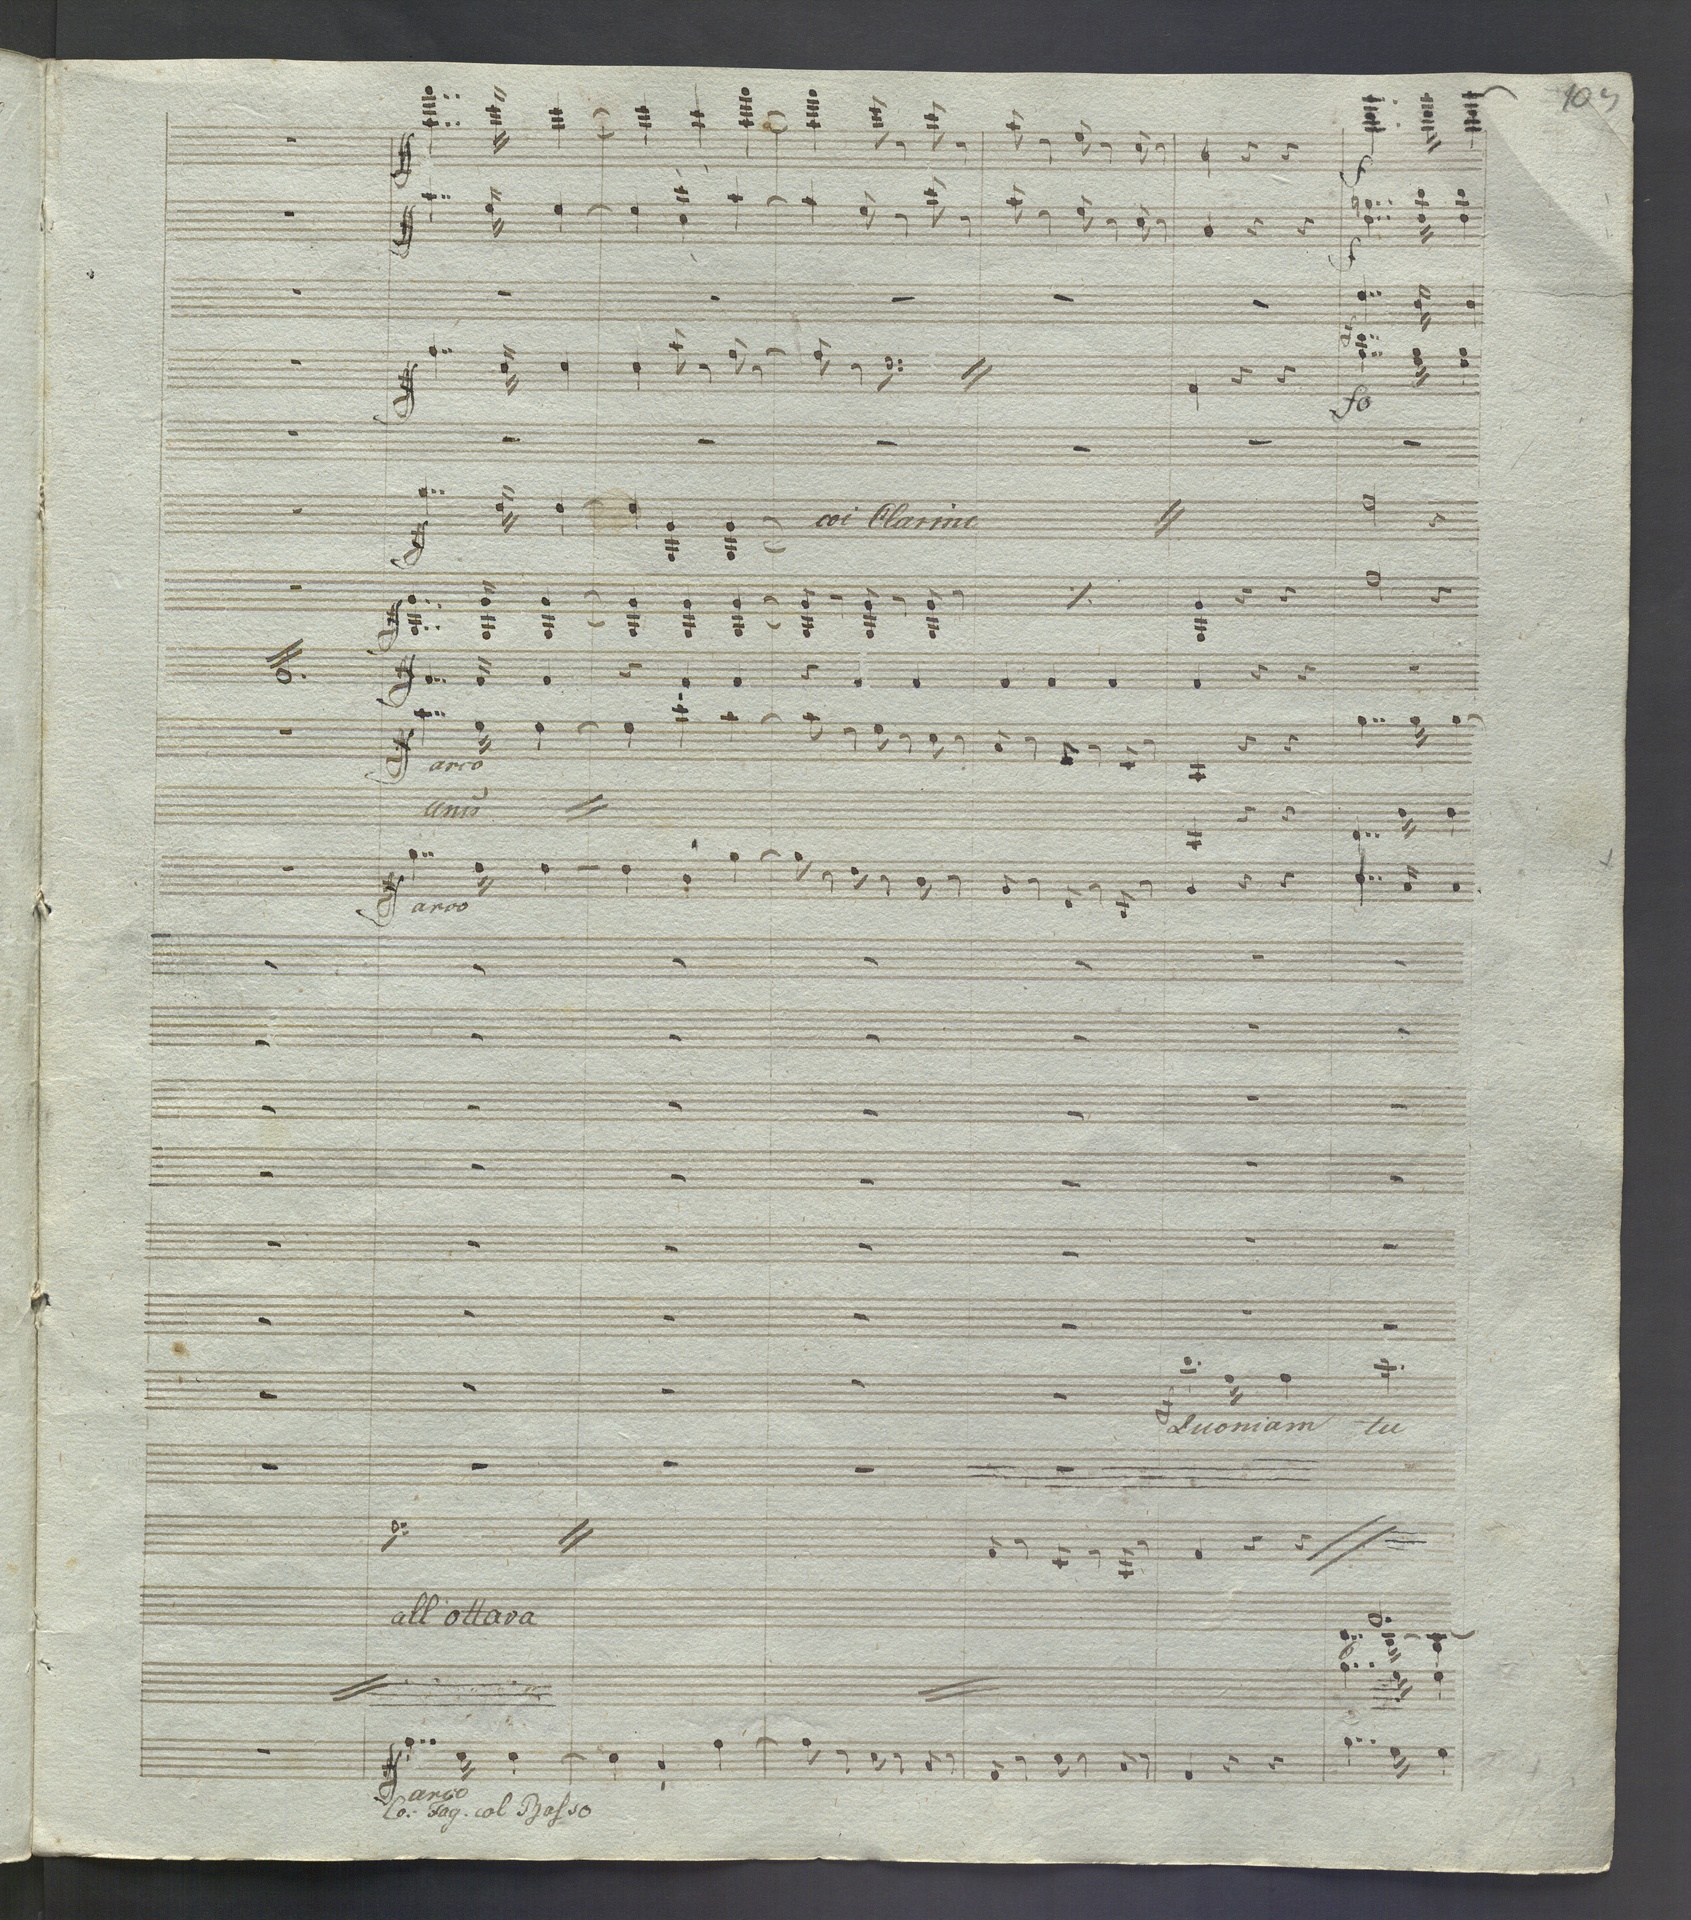 103
ff
ff
ff
fo
coi Clarini
arco
Unis
arco
Quoniam tu
all'ottava
arco
Co: Fag. col Basso